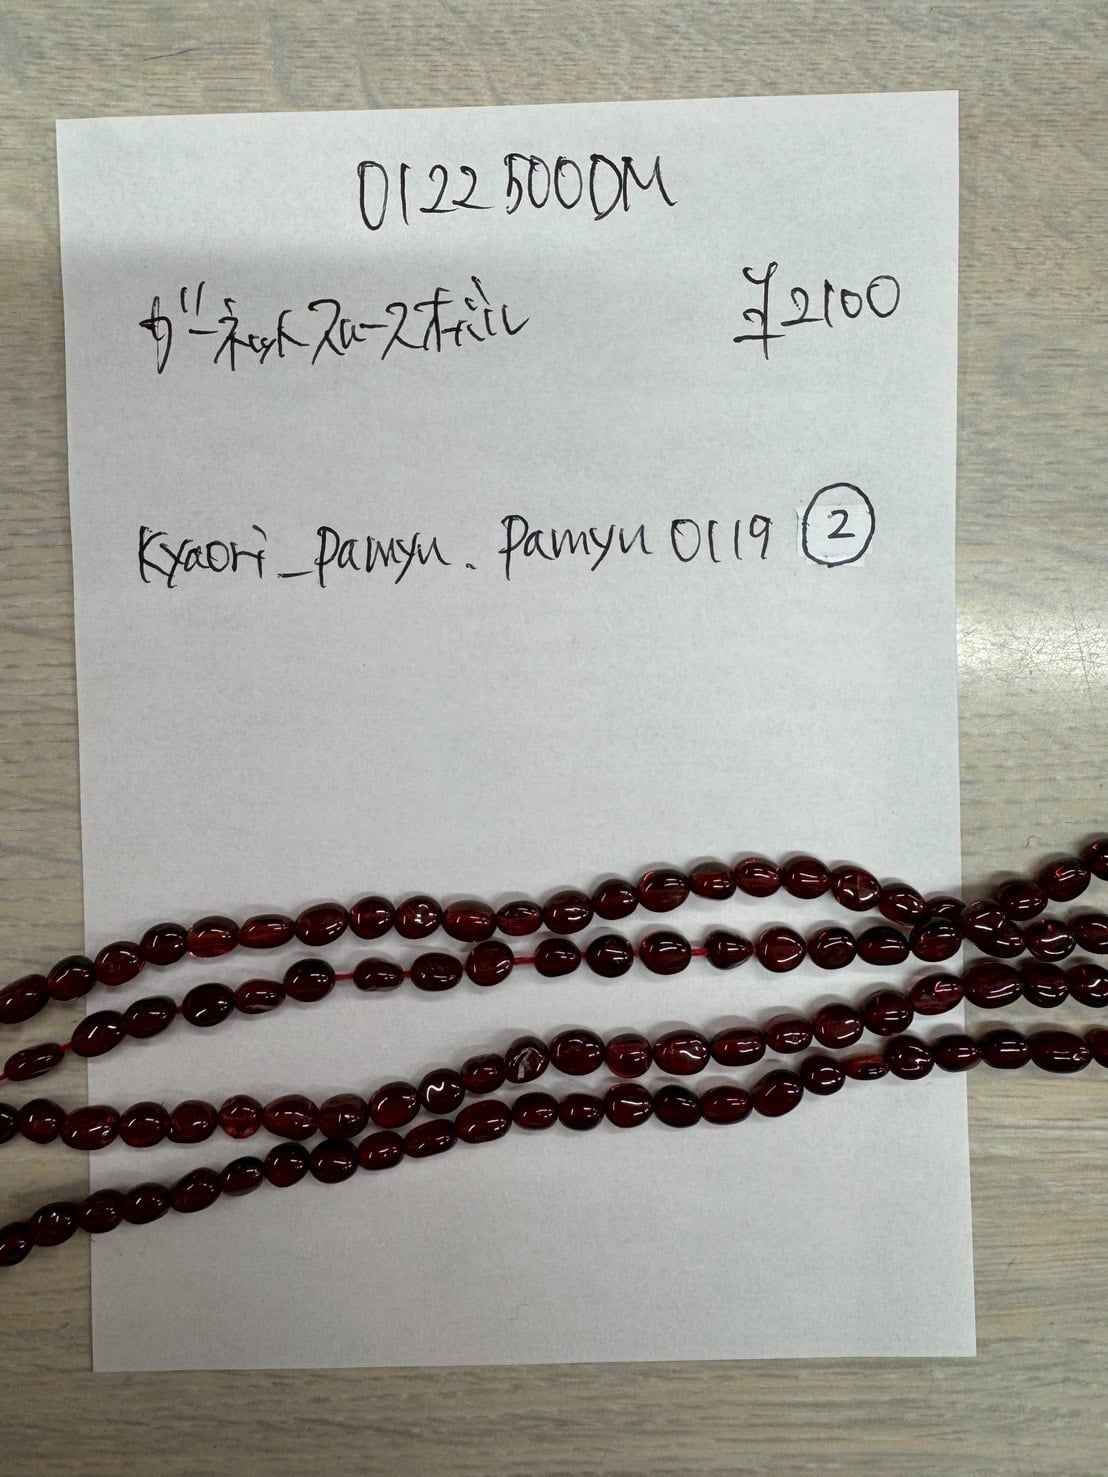 0122 500DM
ガーネットスムースオーバル ¥2100
Kyaori_pamyu.pamyu 0119 ②